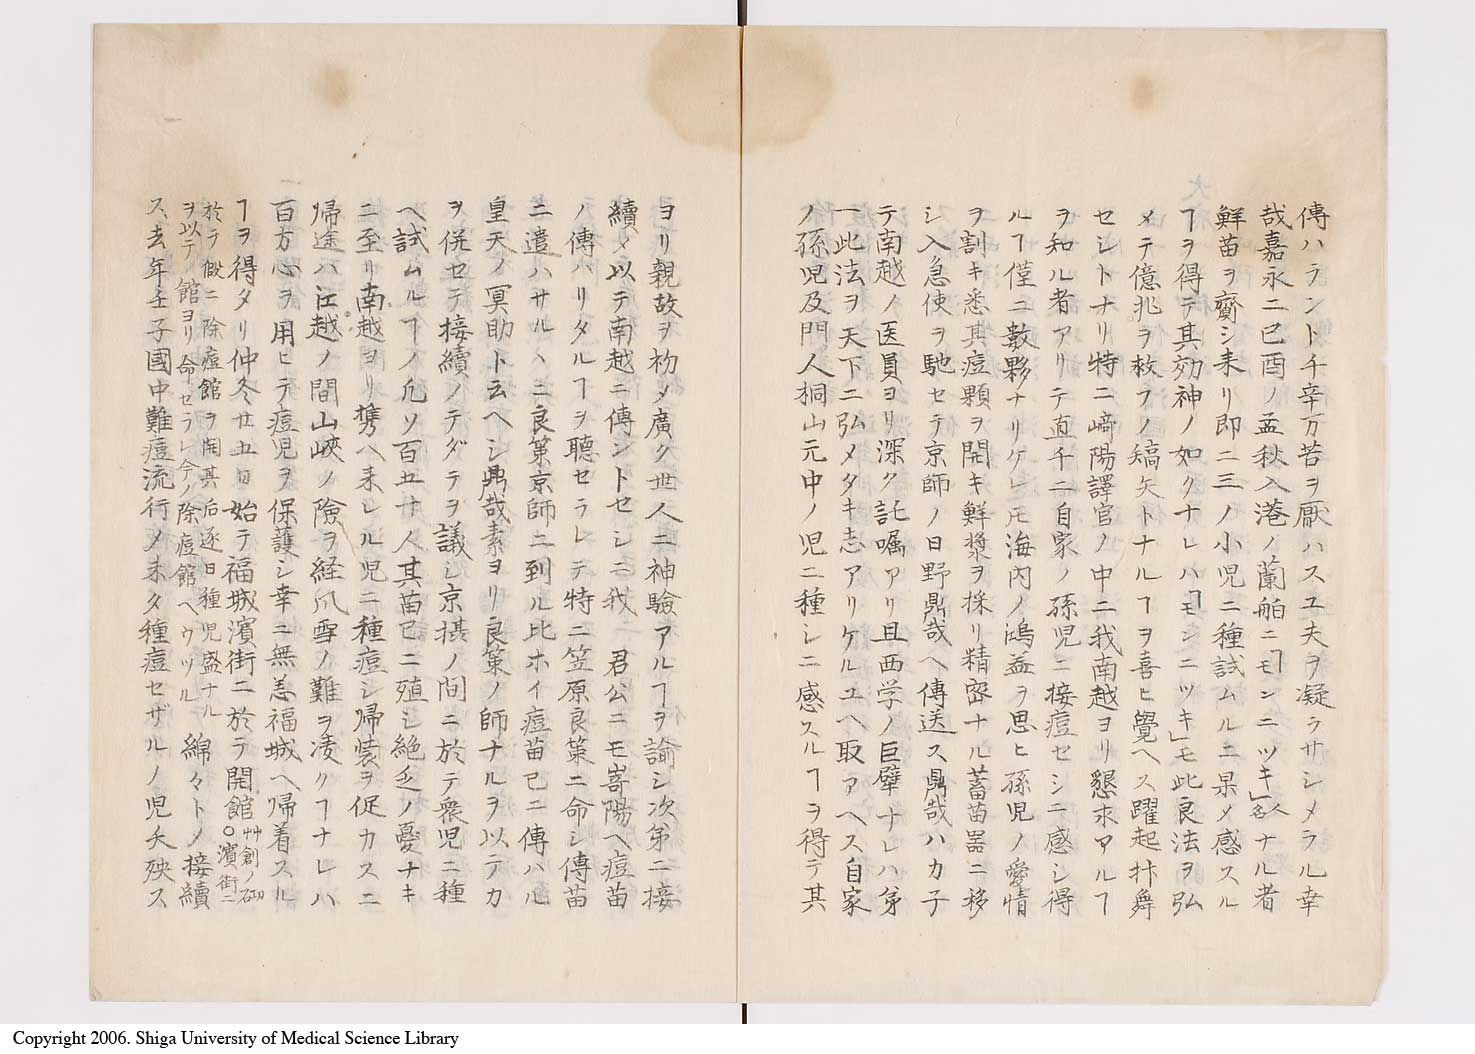 傳ハラント千辛万苦ヲ厭ハスユ夫ヲ凝ラサシメラル幸
哉嘉永二巳酉ノ孟秋入港ノ蘭舶ニ「モンニツキ」人名ナル者
鮮苗ヲ齎シ来リ即ニ三ノ小児ニ種試ムルニ果メ感スル
ヿヲ得テ其効神ノ如クナレハ「モンニツキ」モ此良法ヲ弘
メテ億兆ヲ救フノ縞矢トナルヿヲ喜ヒ覺ヘス躍起抃舞
セシトナリ特ニ﨑陽譯官ノ中ニ我南越ヨリ懇求アルヿ
ヲ知ル者アリテ直チニ自家ノ孫児ニ接痘セシニ感シ得
ルヿ僅ニ數夥ナリケレモ海内ノ鴻益ヲ思ヒ孫児ノ愛情
ヲ割キ悉其痘顆ヲ開キ鮮漿ヲ採リ精密ナル蓄苗器ニ移
シ入急使ヲ馳セテ京師ノ日野鼎哉ヘ傳送ス鼎哉ハカ子
テ南越ノ医員ヨリ深ク託嘱アリ且西学ノ巨擘ナレハ第
一此法ヲ天下ニ弘メタキ志アリケルユヘ取アヘス自家
ノ孫児及門人桐山元中ノ児ニ種シニ感スルヿヲ得テ其
ヨリ親故ヲ初メ廣ク世人ニ神驗アルヿヲ諭シ次第ニ接
續メ以テ南越ニ傳ントセシニ我 君公ニモ﨑陽ヘ痘苗
ノ傳ハリタルヿヲ聴セラレテ特ニ笠原良策ニ命シ傳苗
ニ遣ハサルヽニ良策京師ニ到ル比ホイ痘苗已ニ傳ハル
皇天ノ冥助ト云ヘシ鼎哉素ヨリ良策ノ師ナルヲ以テカ
ヲ併セテ接續ノテダテヲ議シ京摂ノ間ニ於テ衆児ニ種
ヘ試ムルヿノ凡ソ百五十人其苗已ニ殖シ絶乏ノ憂ナキ
ニ至リ南越ヨリ携ヘ来レル児ニ種痘シ帰装ヲ促カスニ
帰途ハ江越ノ間山峽ノ險ヲ経風雪ノ難ヲ凌クヿナレハ
百方心ヲ用ヒテ痘児ヲ保護シ幸ニ無恙福城ヘ帰着スル
ヿヲ得タリ仲冬廿五日始テ福城濱街ニ於テ開館○艸創ノ砌濱街ニ
於テ假ニ除痘館ヲ開其后逐日種児盛ナル
ヲ以テ 館ヨリ命セラレ今ノ除痘館ヘウツル 綿々トメ接續
ス去年壬子國中難痘流行メ未タ種痘セザルノ児夭殃ス
Copyright 2006. Shiga University of Medical Science Library